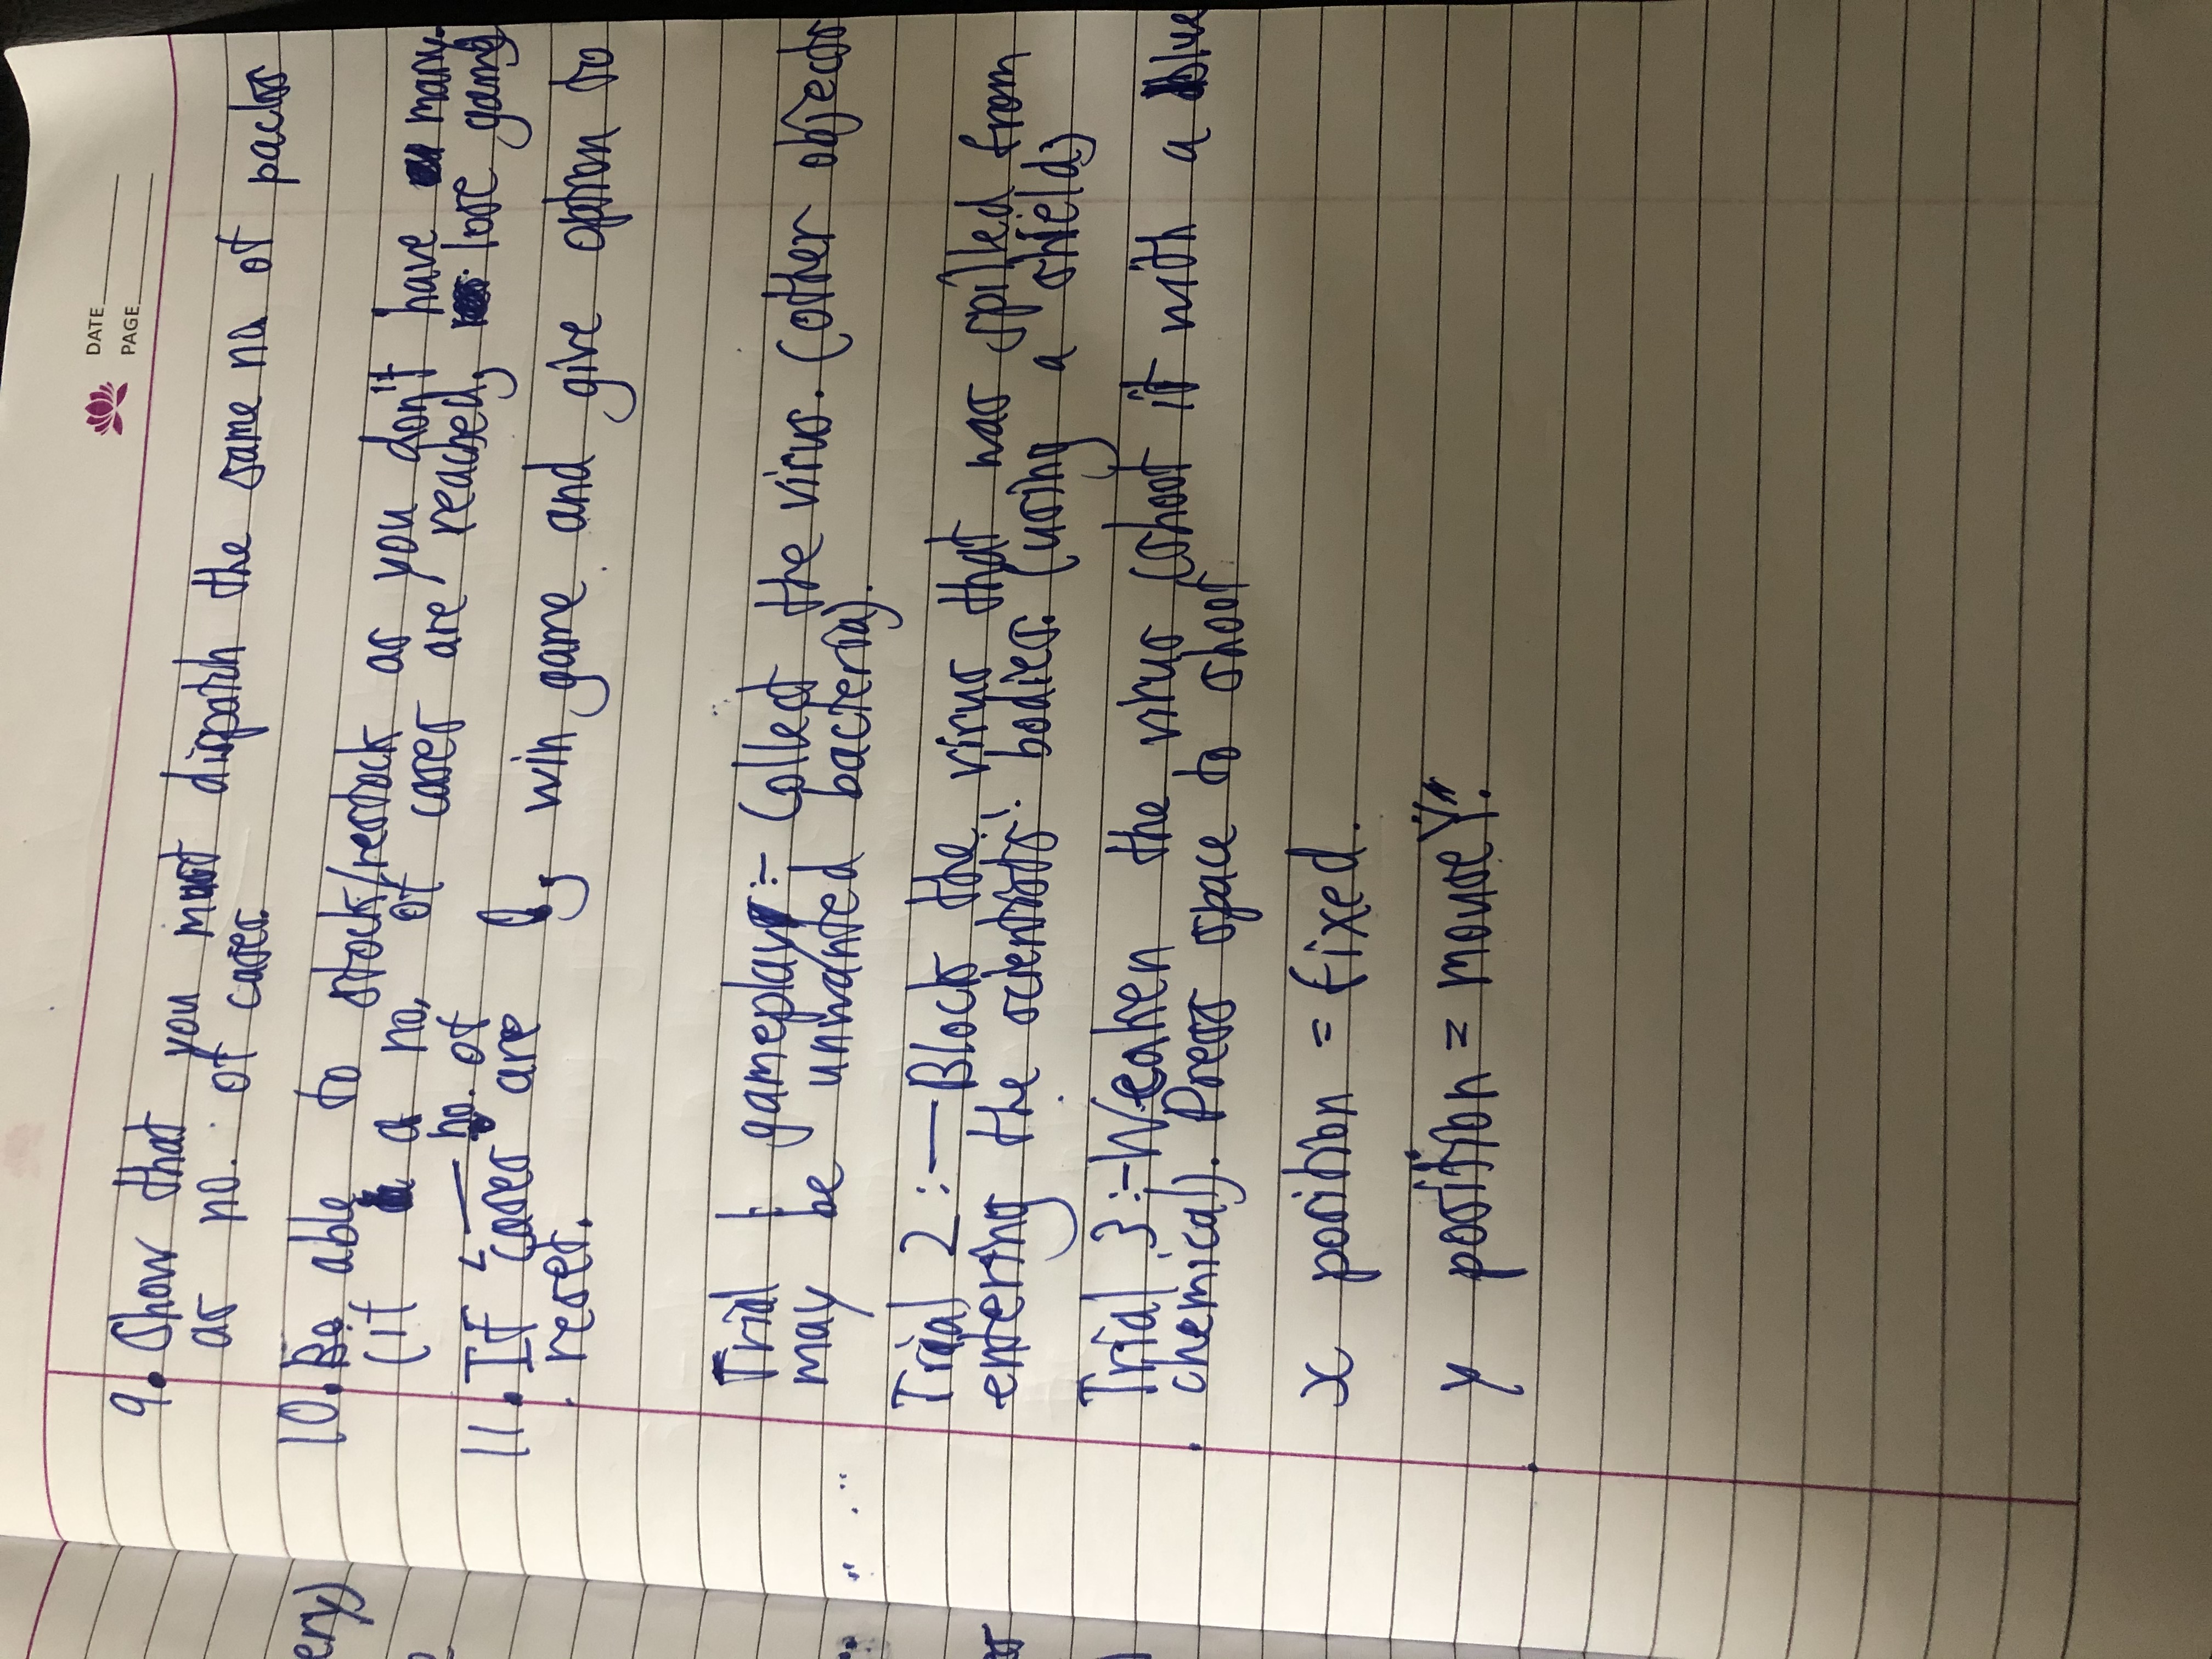 DATE
PAGE
9. Show that you must dispatch the same no. of packs
as no. of cases.
10. Be able to stock/restock as you don't have many.
(if a no. of cases are reached, lose game
no. of
11. If cases are 0, win game and give option to
reset.
ery)
Trial 1 gameplay:- Collect the virus. (other objects
may be unwanted bacteria).
Trial 2:— Block the virus that was spilled from
entering the scientists' bodies. (using a shield)
Trial 3:- Weaken the virus (shoot it with a blue
chemical). Press space to shoot
x position = fixed.
y position = mouseY.